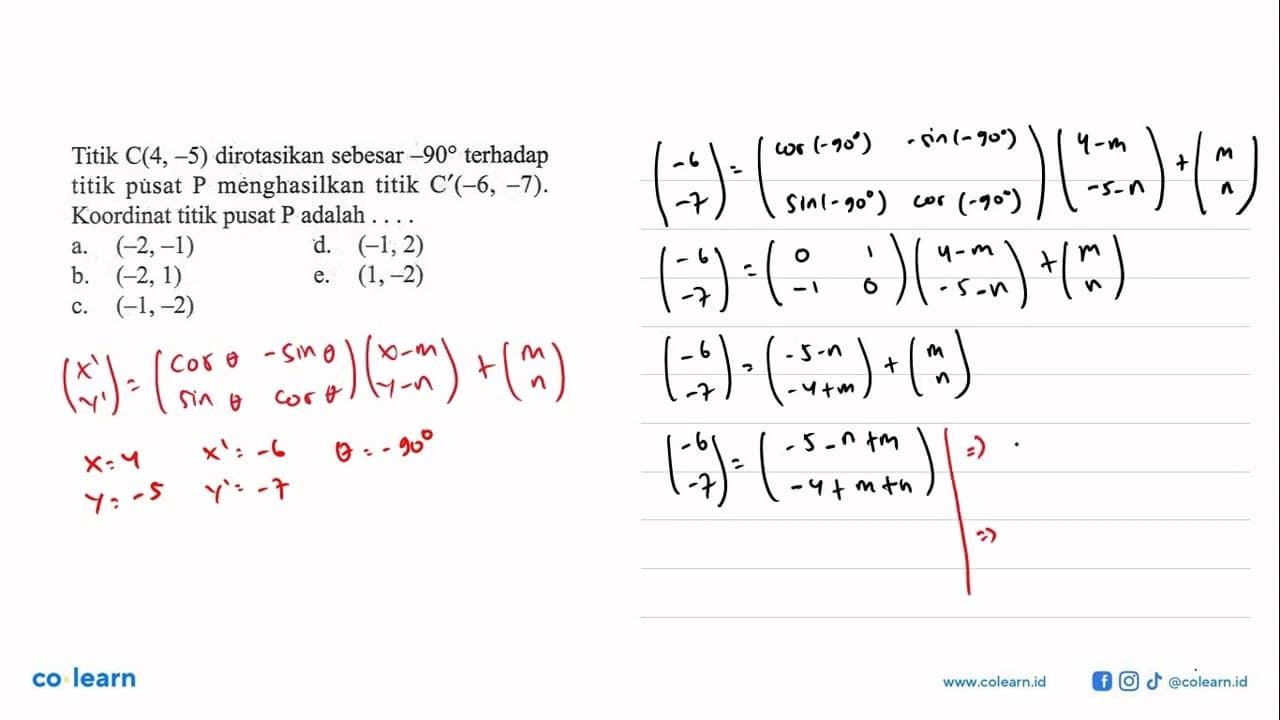 Titik C(4, –5) dirotasikan sebesar –90° terhadap
titik pusat P menghasilkan titik C′(–6, –7).
Koordinat titik pusat P adalah . . . .
a. (–2, –1) d. (–1, 2)
b. (–2, 1) e. (1, –2)
c. (–1, –2)
(x' y') = (cos θ -sin θ sin θ cos θ)(x-m y-n) + (m n)
x=4 x'=-6 θ=-90°
y=-5 y'=-7
(-6 -7) = (cos(-90°) -sin(-90°) sin(-90°) cos(-90°))(4-m -5-n) + (m n)
(-6 -7) = (0 1 -1 0)(4-m -5-n) + (m n)
(-6 -7) = (-5-n -4+m) + (m n)
(-6 -7) = (-5-n+m -4+m+n) =>
=>
co·learn
www.colearn.id @colearn.id